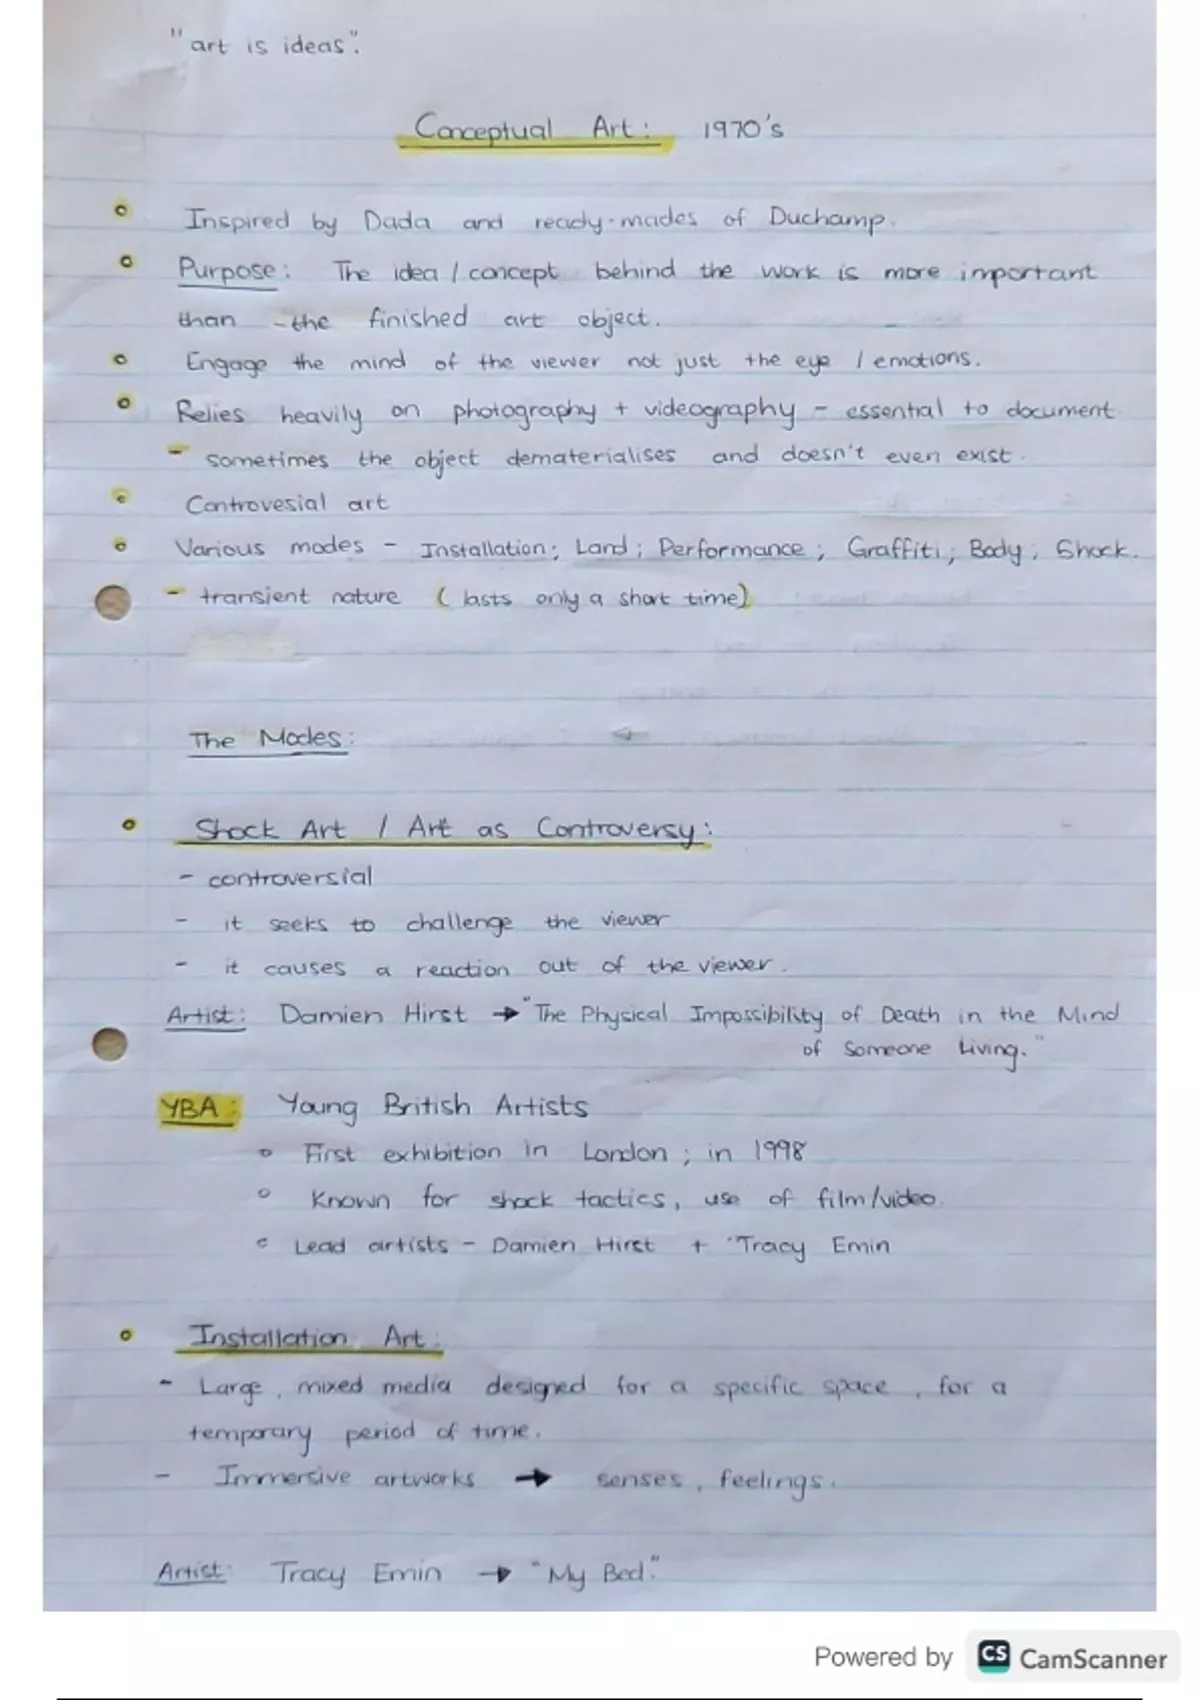 "art is ideas".
Conceptual Art: 1970's
Inspired by Dada and ready-mades of Duchamp.
Purpose: The idea / concept behind the work is more important
than the finished art object.
Engage the mind of the viewer not just the eye / emotions.
Relies heavily on photography + videography - essential to document
- sometimes the object dematerialises and doesn't even exist.
Controvesial art
Various modes - Installation; Land; Performance; Graffiti; Body; Shock.
- transient nature (lasts only a short time)
The Modes:
Shock Art / Art as Controversy:
- controversial
- it seeks to challenge the viewer
- it causes a reaction out of the viewer.
Artist: Damien Hirst → "The Physical Impossibility of Death in the Mind
of Someone Living."
YBA: Young British Artists
First exhibition in London; in 1998
Known for shock tactics, use of film/video.
Lead artists - Damien Hirst + Tracy Emin
Installation Art:
- Large, mixed media designed for a specific space, for a
temporary period of time.
- Immersive artworks → senses, feelings.
Artist: Tracy Emin → "My Bed."
Powered by CS CamScanner